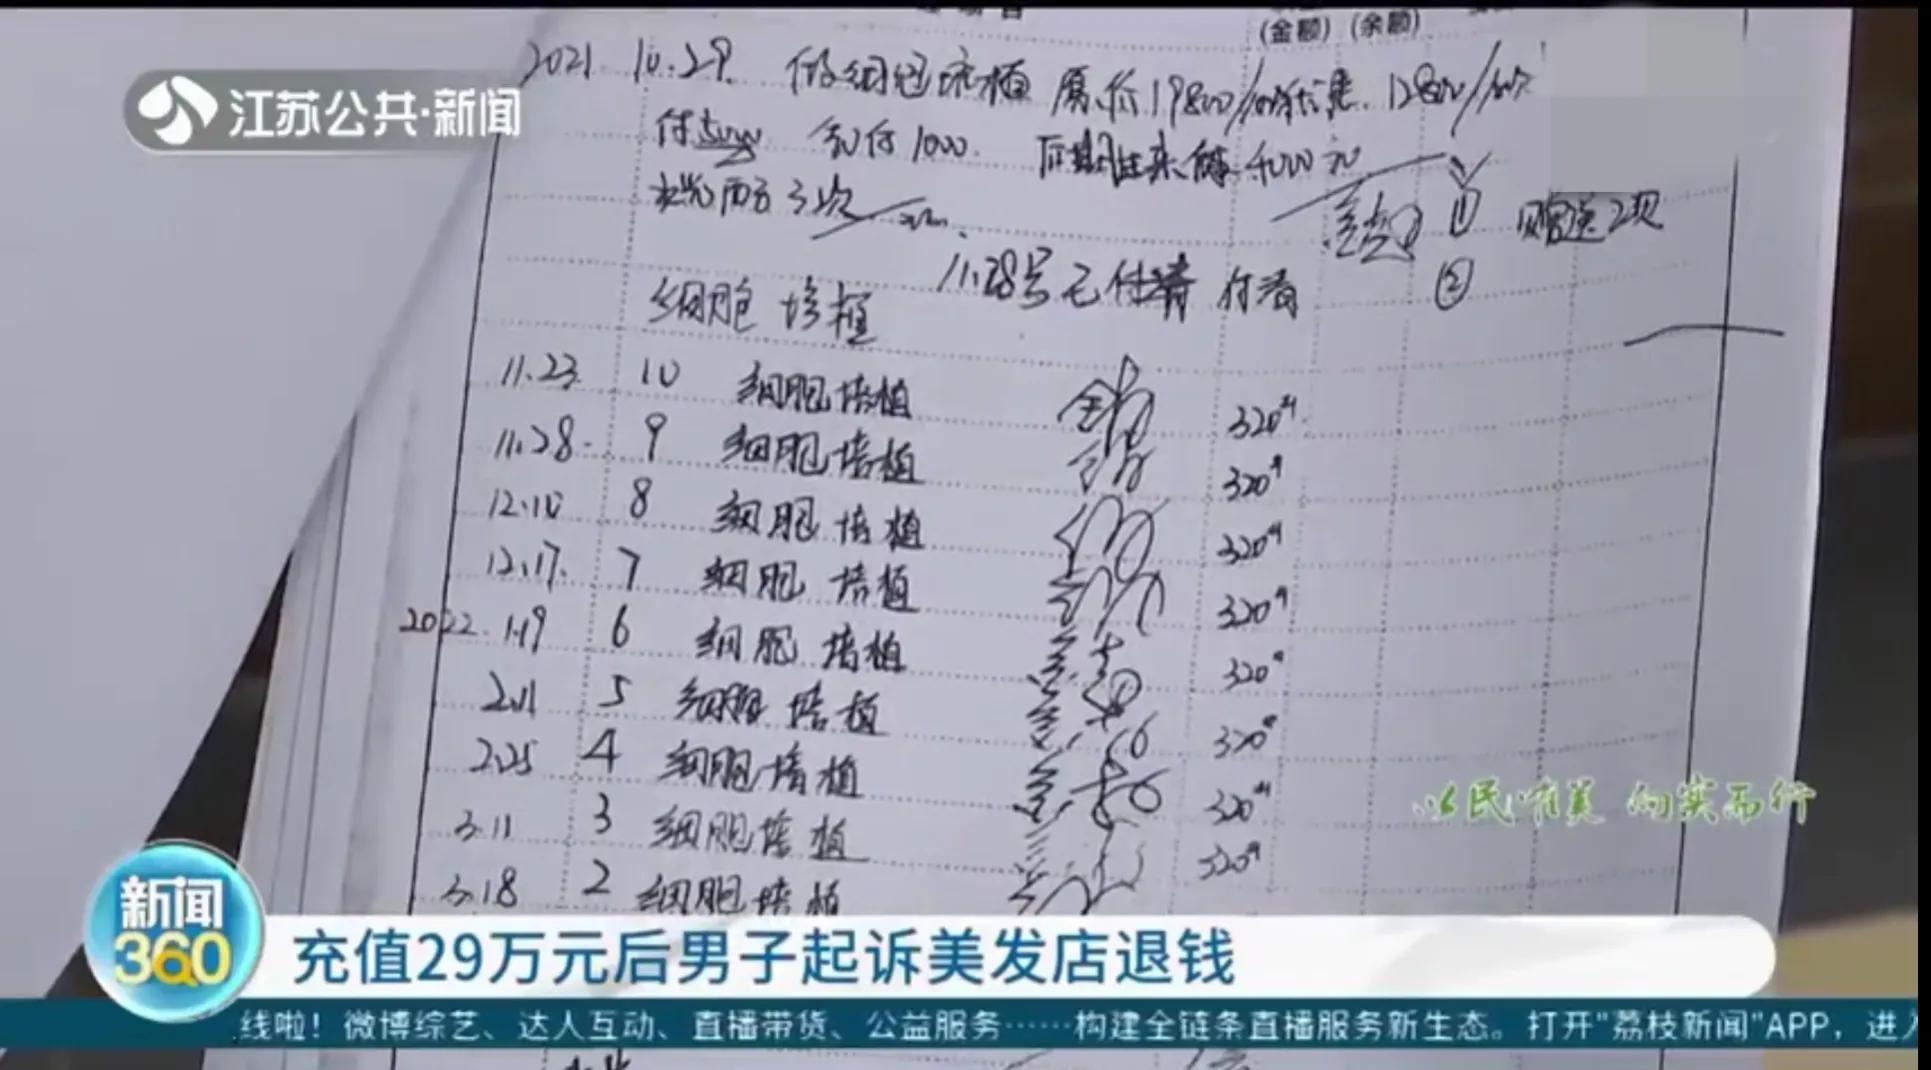 (金额) (余额)
江苏公共·新闻
2021 10.29. 做细胞培植 原价19800/10次 12800/10次
付5000 先付1000. 后期过来 4000元
3次
赠送2次
11.28号已付清 付清
①
②
细胞 培植
11.23 10 细胞培植 320
11.28 9 细胞培植 320
12.10 8 细胞培植 320
12.17. 7 细胞培植 320
2022. 1.19 6 细胞培植 320
2.11 5 细胞培植 320
2.25 4 细胞培植 320
3.11 3 细胞培植 320
3.18 2 细胞培植
以民唯美 向实而行
新闻
360
充值29万元后男子起诉美发店退钱
线啦！微博综艺、达人互动、直播带货、公益服务……构建全链条直播服务新生态。打开"荔枝新闻"APP，进入